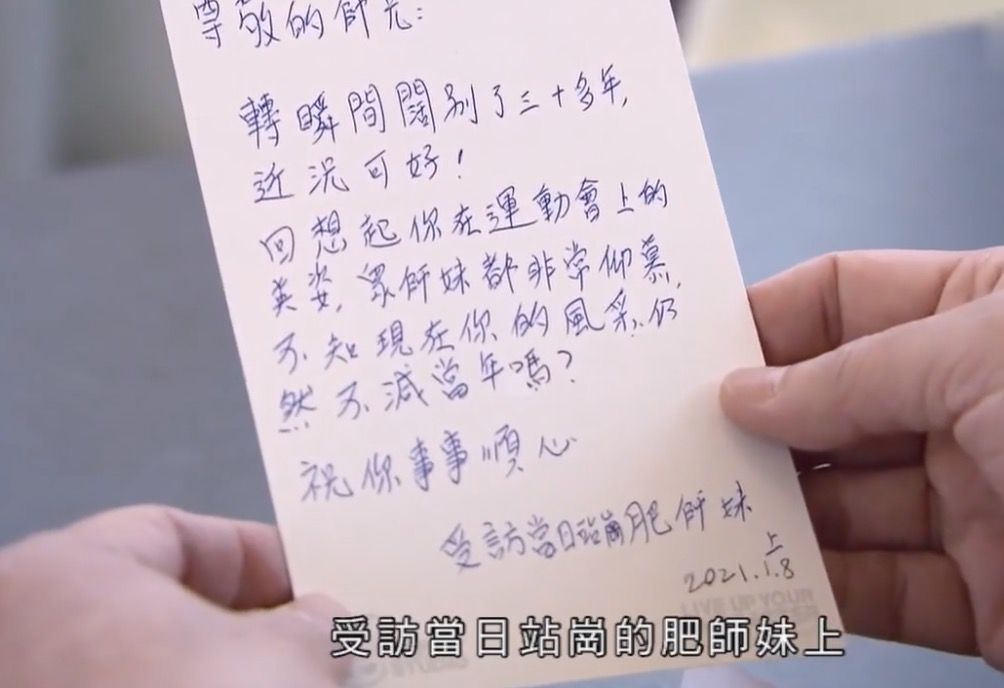 尊敬的師兄：
轉瞬間闊別了三十多年,
近況可好！
回想起你在運動會上的
英姿, 眾師妹都非常仰慕,
不知現在你的風采仍
然不減當年嗎？
祝你事事順心
受訪當日站崗肥師妹
上
2021.1.8
LIVE UP YOUR
受訪當日站崗的肥師妹上